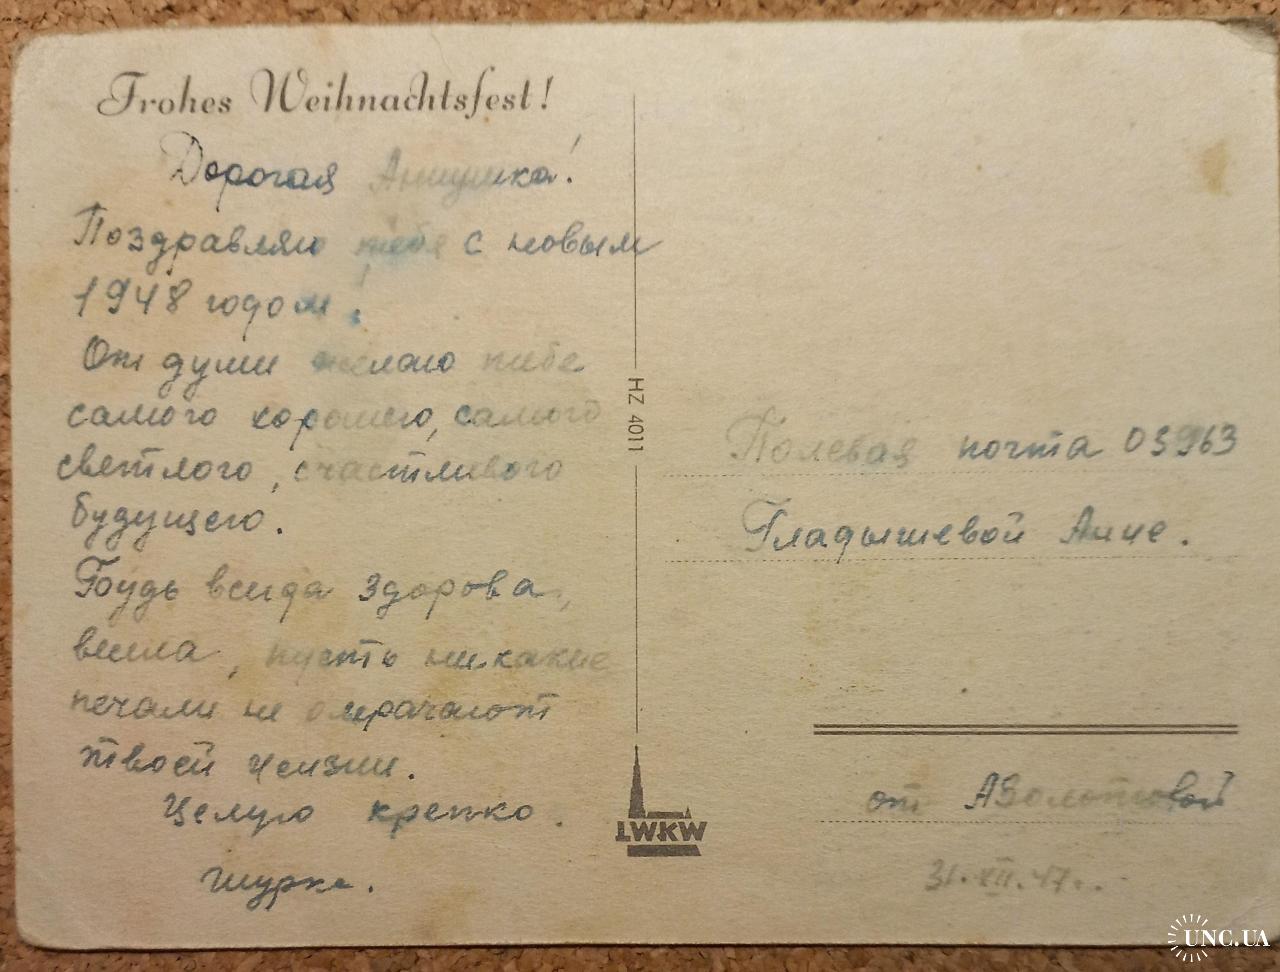 Frohes Weihnachtsfest!
Дорогая Аннушка!
Поздравляю тебя с новым
1948 годом!
От души желаю тебе
самого хорошего, самого
светлого, счастливого
будущего.
Будь всегда здорова,
весела, пусть никакие
печали не омрачают
твоей жизни.
Целую крепко.
Шурка.
HZ 4011
LWKW
Полевая почта 03963
Гладышевой Анне.
от АЗолотовой
31.XII.47.
UNC.UA